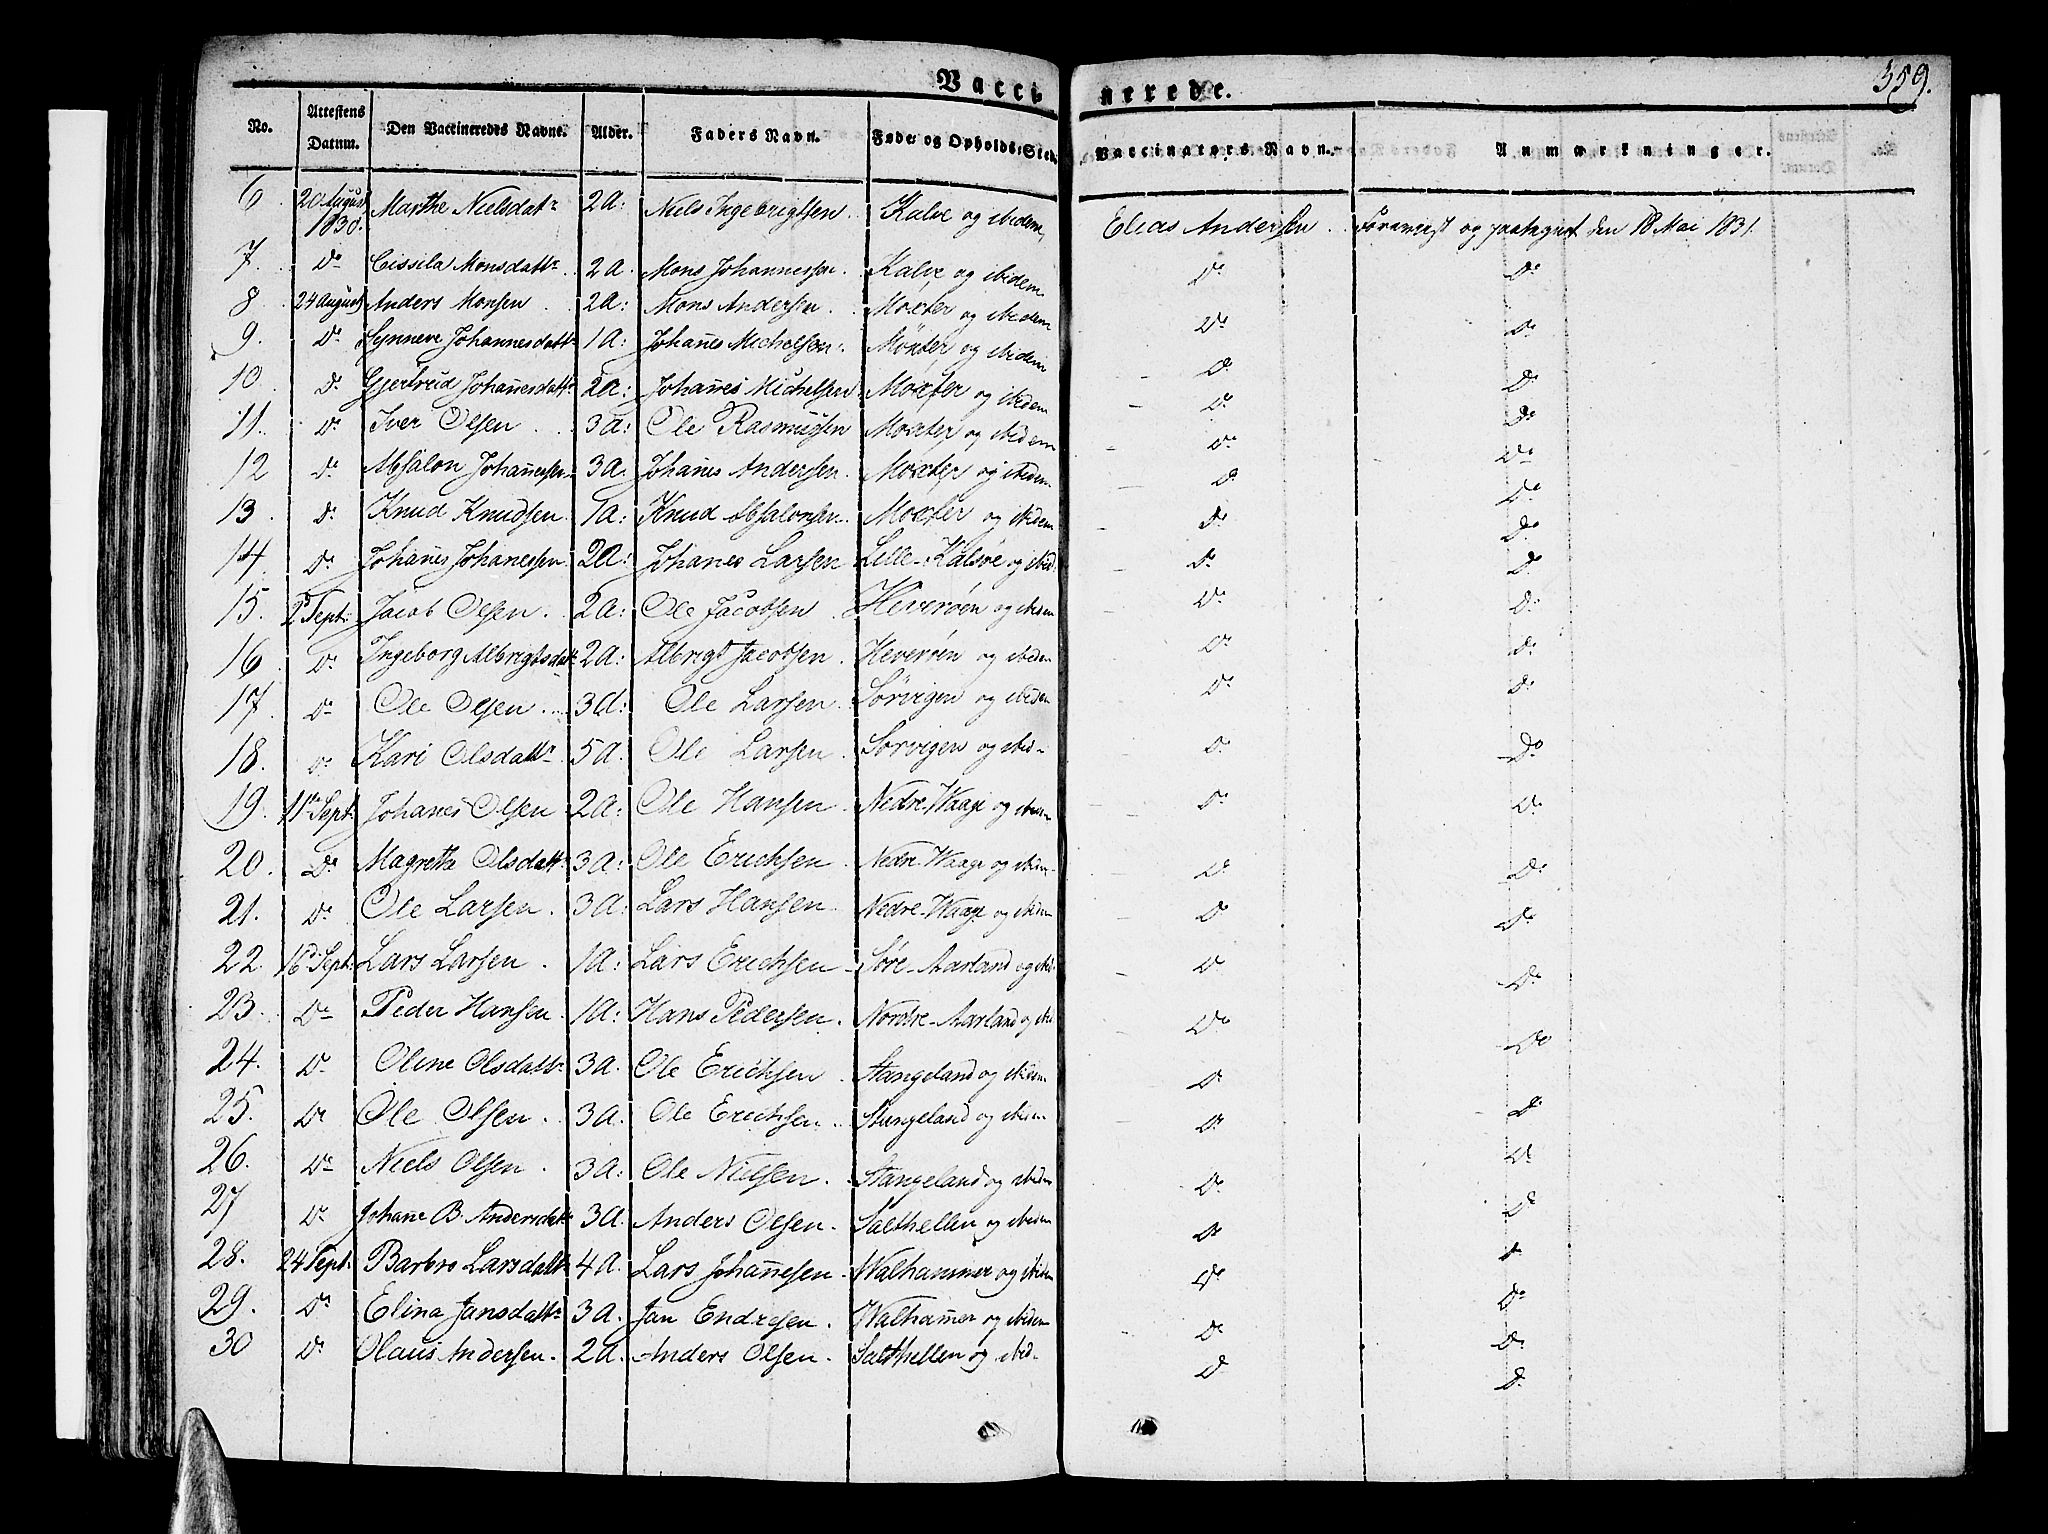 Vaccinerede. 359.
No. Attestens Datum. Den Vaccineredes Navne. Alder. Faders Navn. Føde- og Opholds-Sted. Vaccinators Navn. Anmærkninger.
6 20 August 1830. Marthe Nielsdatr 2a: Niels Ingebrigtsen. Kalve og ibidem, Elias Andersen. Foreviist og paategnet den 18 Mai 1831.
7. Do Cissila Monsdattr. 2a. Mons Johannessen. Kalve og ibidem Do Do
8. 24 August Anders Monsen. 2a: Mons Andersen. Moxter og ibidem Do Do
9. Do Synneve Johannesdattr 1a: Johañes Michelsen. Moxter og ibidem Do Do
10. Do Gjertrud Johañesdattr 2a: Johañes Michelsen Moxter og ibidem Do Do
11. Do Iver Olsen. 3a: Ole Rasmussen Moxter og ibidem Do Do
12 Do Absalon Johañesen. 3a. Johañes Andersen. Moxter og ibidem Do Do
13. Do Knud Knudsen. 1a: Knud Absalonsen. Moxter og ibidem Do Do
14. Do Johañes Johanessen. 2a: Johanes Larsen Lille-Kalsøe og ibid: Do Do
15. 2d Sept: Jacob Olsen. 2a: Ole Jacobsen. Heverøen og ibidem Do Do
16. Do Ingeborg Albrigtsdattr 2a: Albrigt Jacobsen. Heverøen og ibidem Do Do
17. Do Ole Olsen. 3a: Ole Larsen. Sørvigen og ibidem Do Do
18. Do Kari Olsdattr 5a. Ole Larsen. Sørvigen og ibid- Do Do
19. 11te Sept: Johañes Olsen 2a: Ole Hansen. Nedre-Waage og ibidem Do Do
20. Do Magretha Olsdattr 3a: Ole Erichsen. Nedre-Waage og ibidem Do Do
21. Do Ole Larsen. 3a: Lars Hansen. Nedre-Waage og ibidem Do Do
22. 16d Sept: Lars Larsen. 1a: Lars Erichsen. Søre-Aarland og ibid: Do Do
23. Do Peder Hansen. 1a: Hans Pedersen. Nordre-Aarland og ibid Do Do
24. Do Oline Olsdattr 3a. Ole Erichsen. Stangeland og ibidem Do Do
25. Do Ole Olsen. 3a. Ole Erichsen. Stangeland og ibidem Do Do
26. Do Niels Olsen. 3a: Ole Nielsen. Stangeland og ibidem Do Do
27 Do Johañe B. Andersdatr 3a. Anders Olsen. Salthellen og ibidem Do Do
28. 24 Sept: Barbro Larsdattr 4a. Lars Johañesen. Walhammer og ibidem Do Do
29. Do Elina Jansdattr 3a. Jan Endresen. Walham̃er og ibidem Do Do
30 Do Olaus Andersen. 2a. Anders Olsen. Salthellen og ibid- Do Do